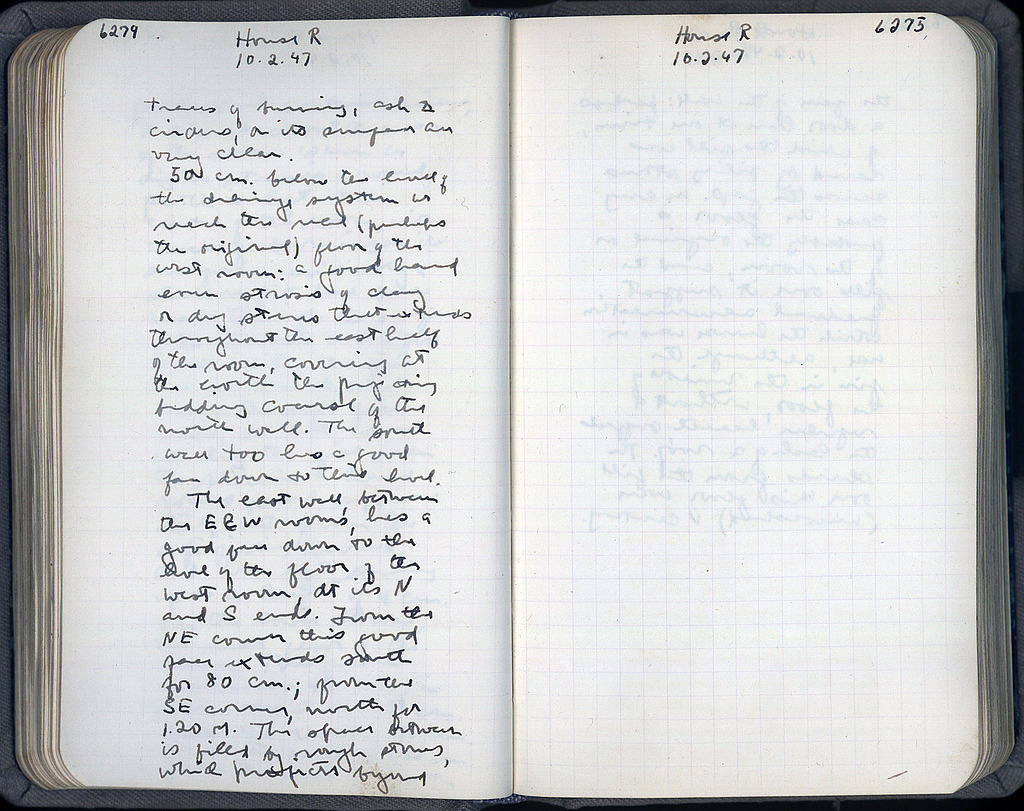 6279
House R
10.2.47
traces of burning, ash &
cinders, on its surface are
very clear.
50 cm. below the level of
the drainage system we
reach the real (perhaps
the original) floor of the
west room: a good hard
even strosis of clay
or dry stereo that extends
throughout the east half
of the room, covering at
the north the projecting
bedding course of the
north wall. The south
wall too has a good
face down to this level.
The east wall, between
the E & W rooms, has a
good face down to the
level of the floor of the
west room, at its N
and S ends. From the
NE corner this good
face extends south
for 80 cm.; from the
SE corner, north for
1.20 m. The space between
is filled by rough stones,
which projects beyond
6275
House R
10.2.47